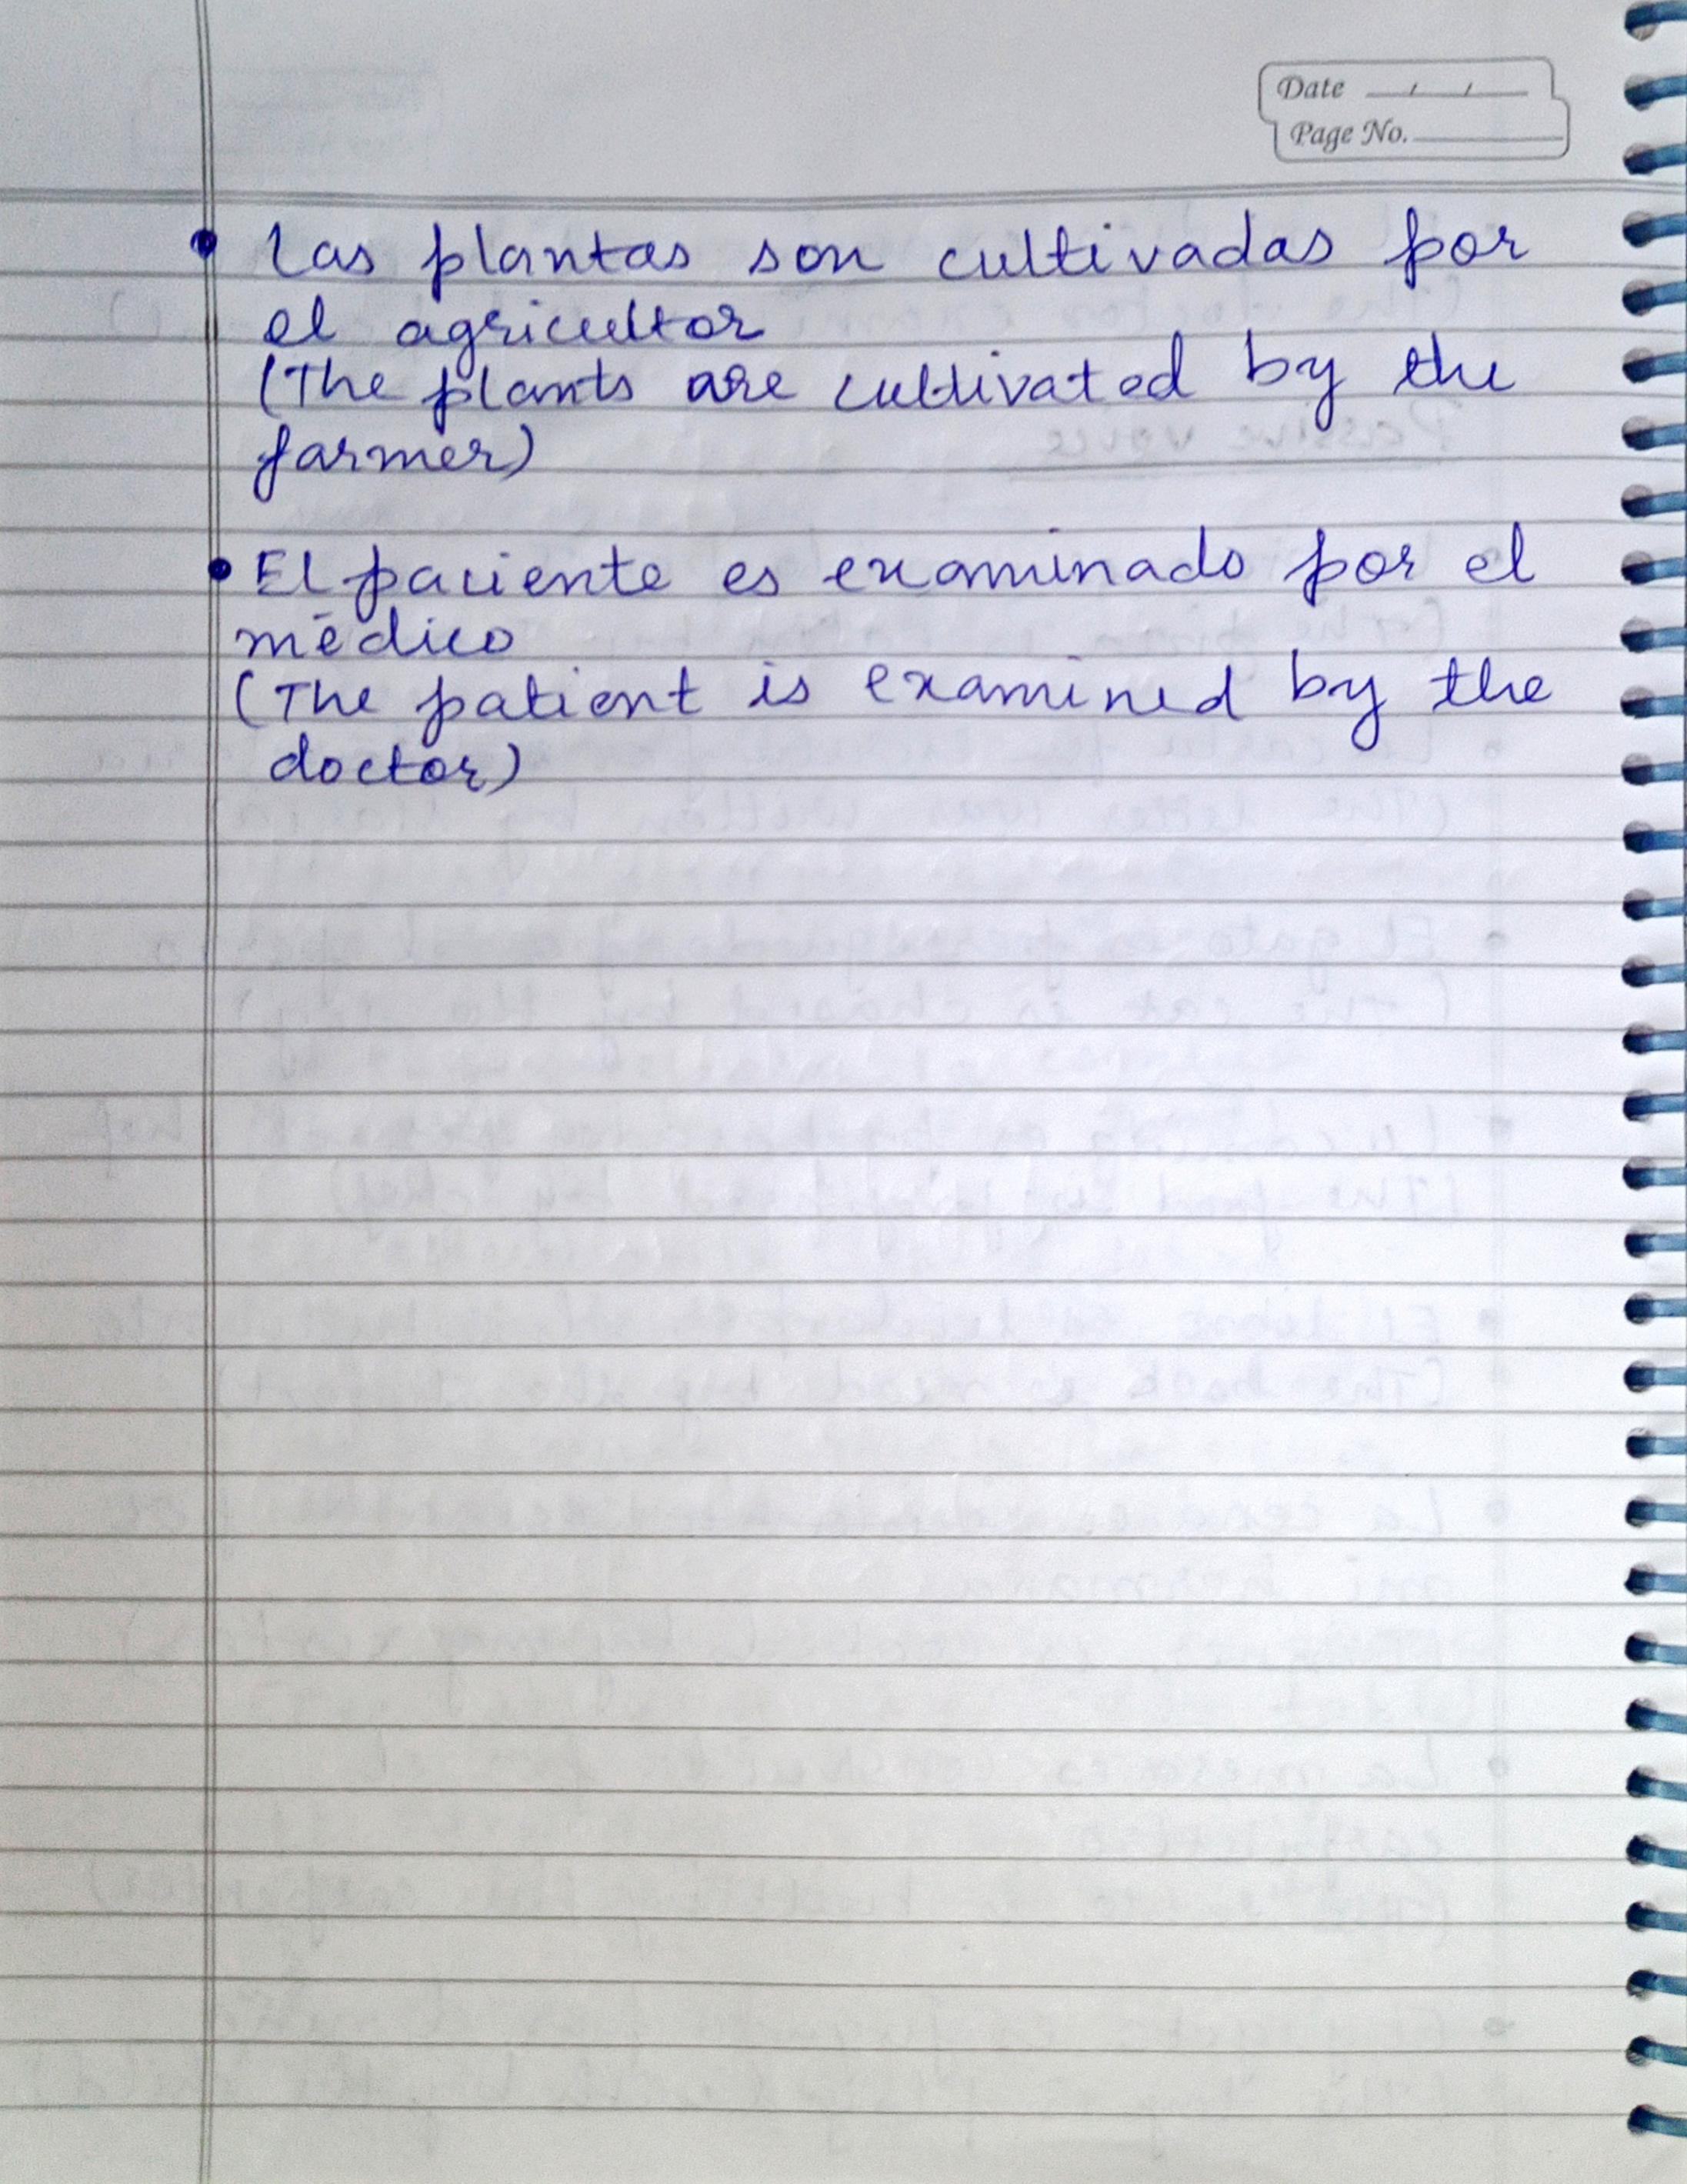 Date / /
Page No.
• Las plantas son cultivadas por
el agricultor
(The plants are cultivated by the
farmer)
• El paciente es examinado por el
médico
(The patient is examined by the
doctor)